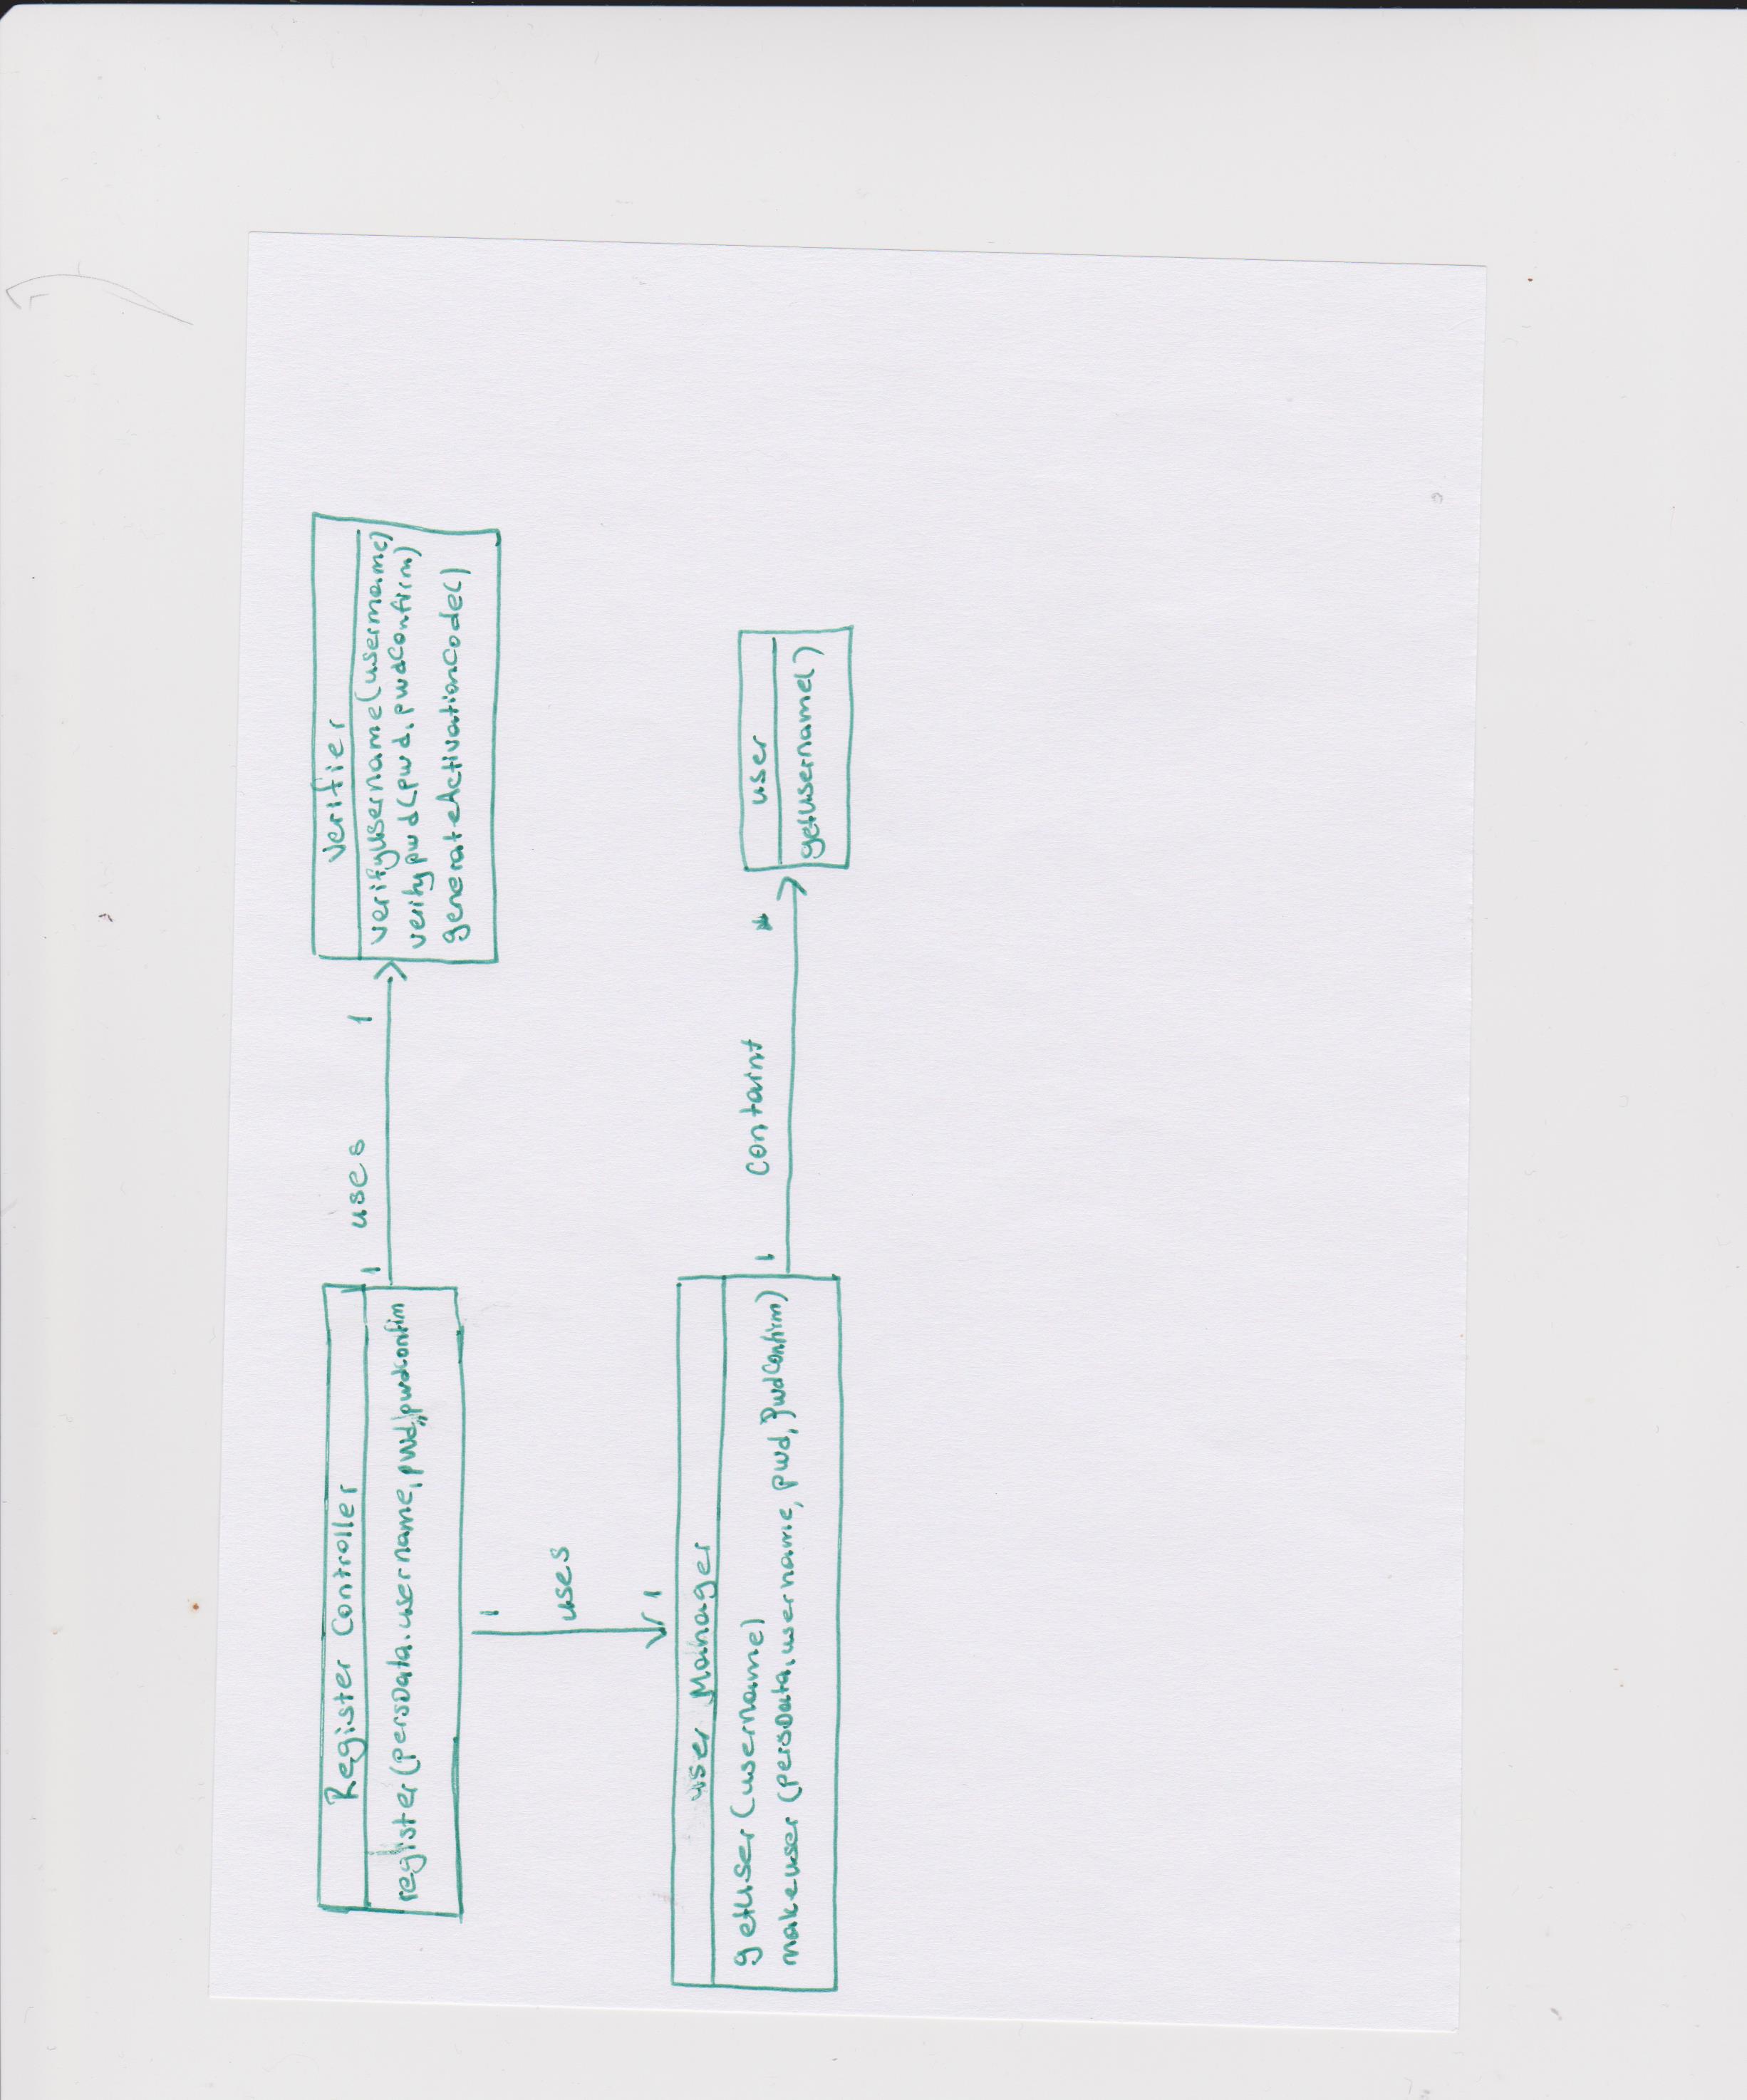 Register Controller
register(persData.username,pwd,pwdconfim
1
uses
1
verifier
verifyusername(username)
verifypwd(pwd.pwdconfirm)
generateActivationcode()
1
uses
1
user Manager
getuser(username)
makeuser(persData.username, pwd, pwdconfirm)
1
containt
*
user
getusername()